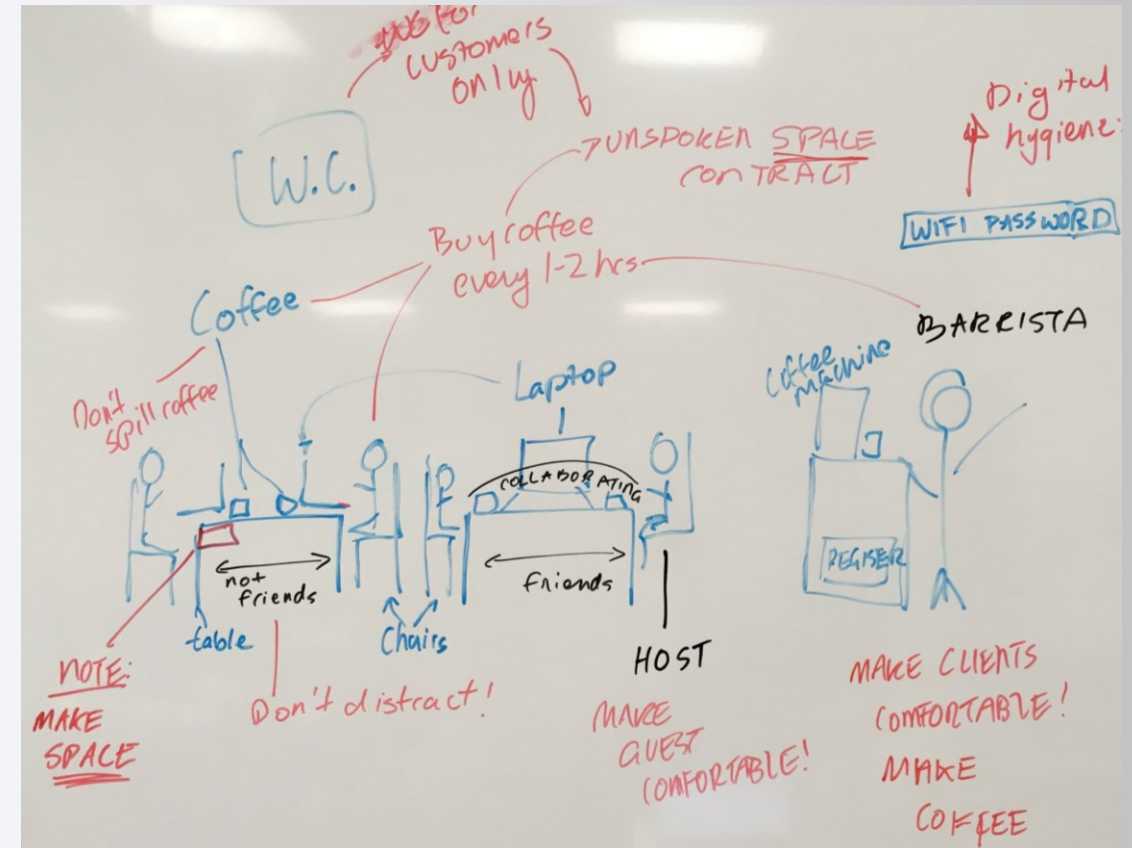 for
customers
only
Digital
hygiene:
UNSPOKEN SPACE
CONTRACT
W.C.
WIFI PASSWORD
Buy coffee
every 1-2 hrs
Coffee
BARRISTA
Coffee
machine
Laptop
Don't
spill coffee
COLLABORATING
REGISER
not
friends
friends
table
Chairs
HOST
NOTE:
MAKE
SPACE
Don't distract!
MAKE
GUEST
COMFORTABLE!
MAKE CLIENTS
COMFORTABLE!
MAKE
COFFEE